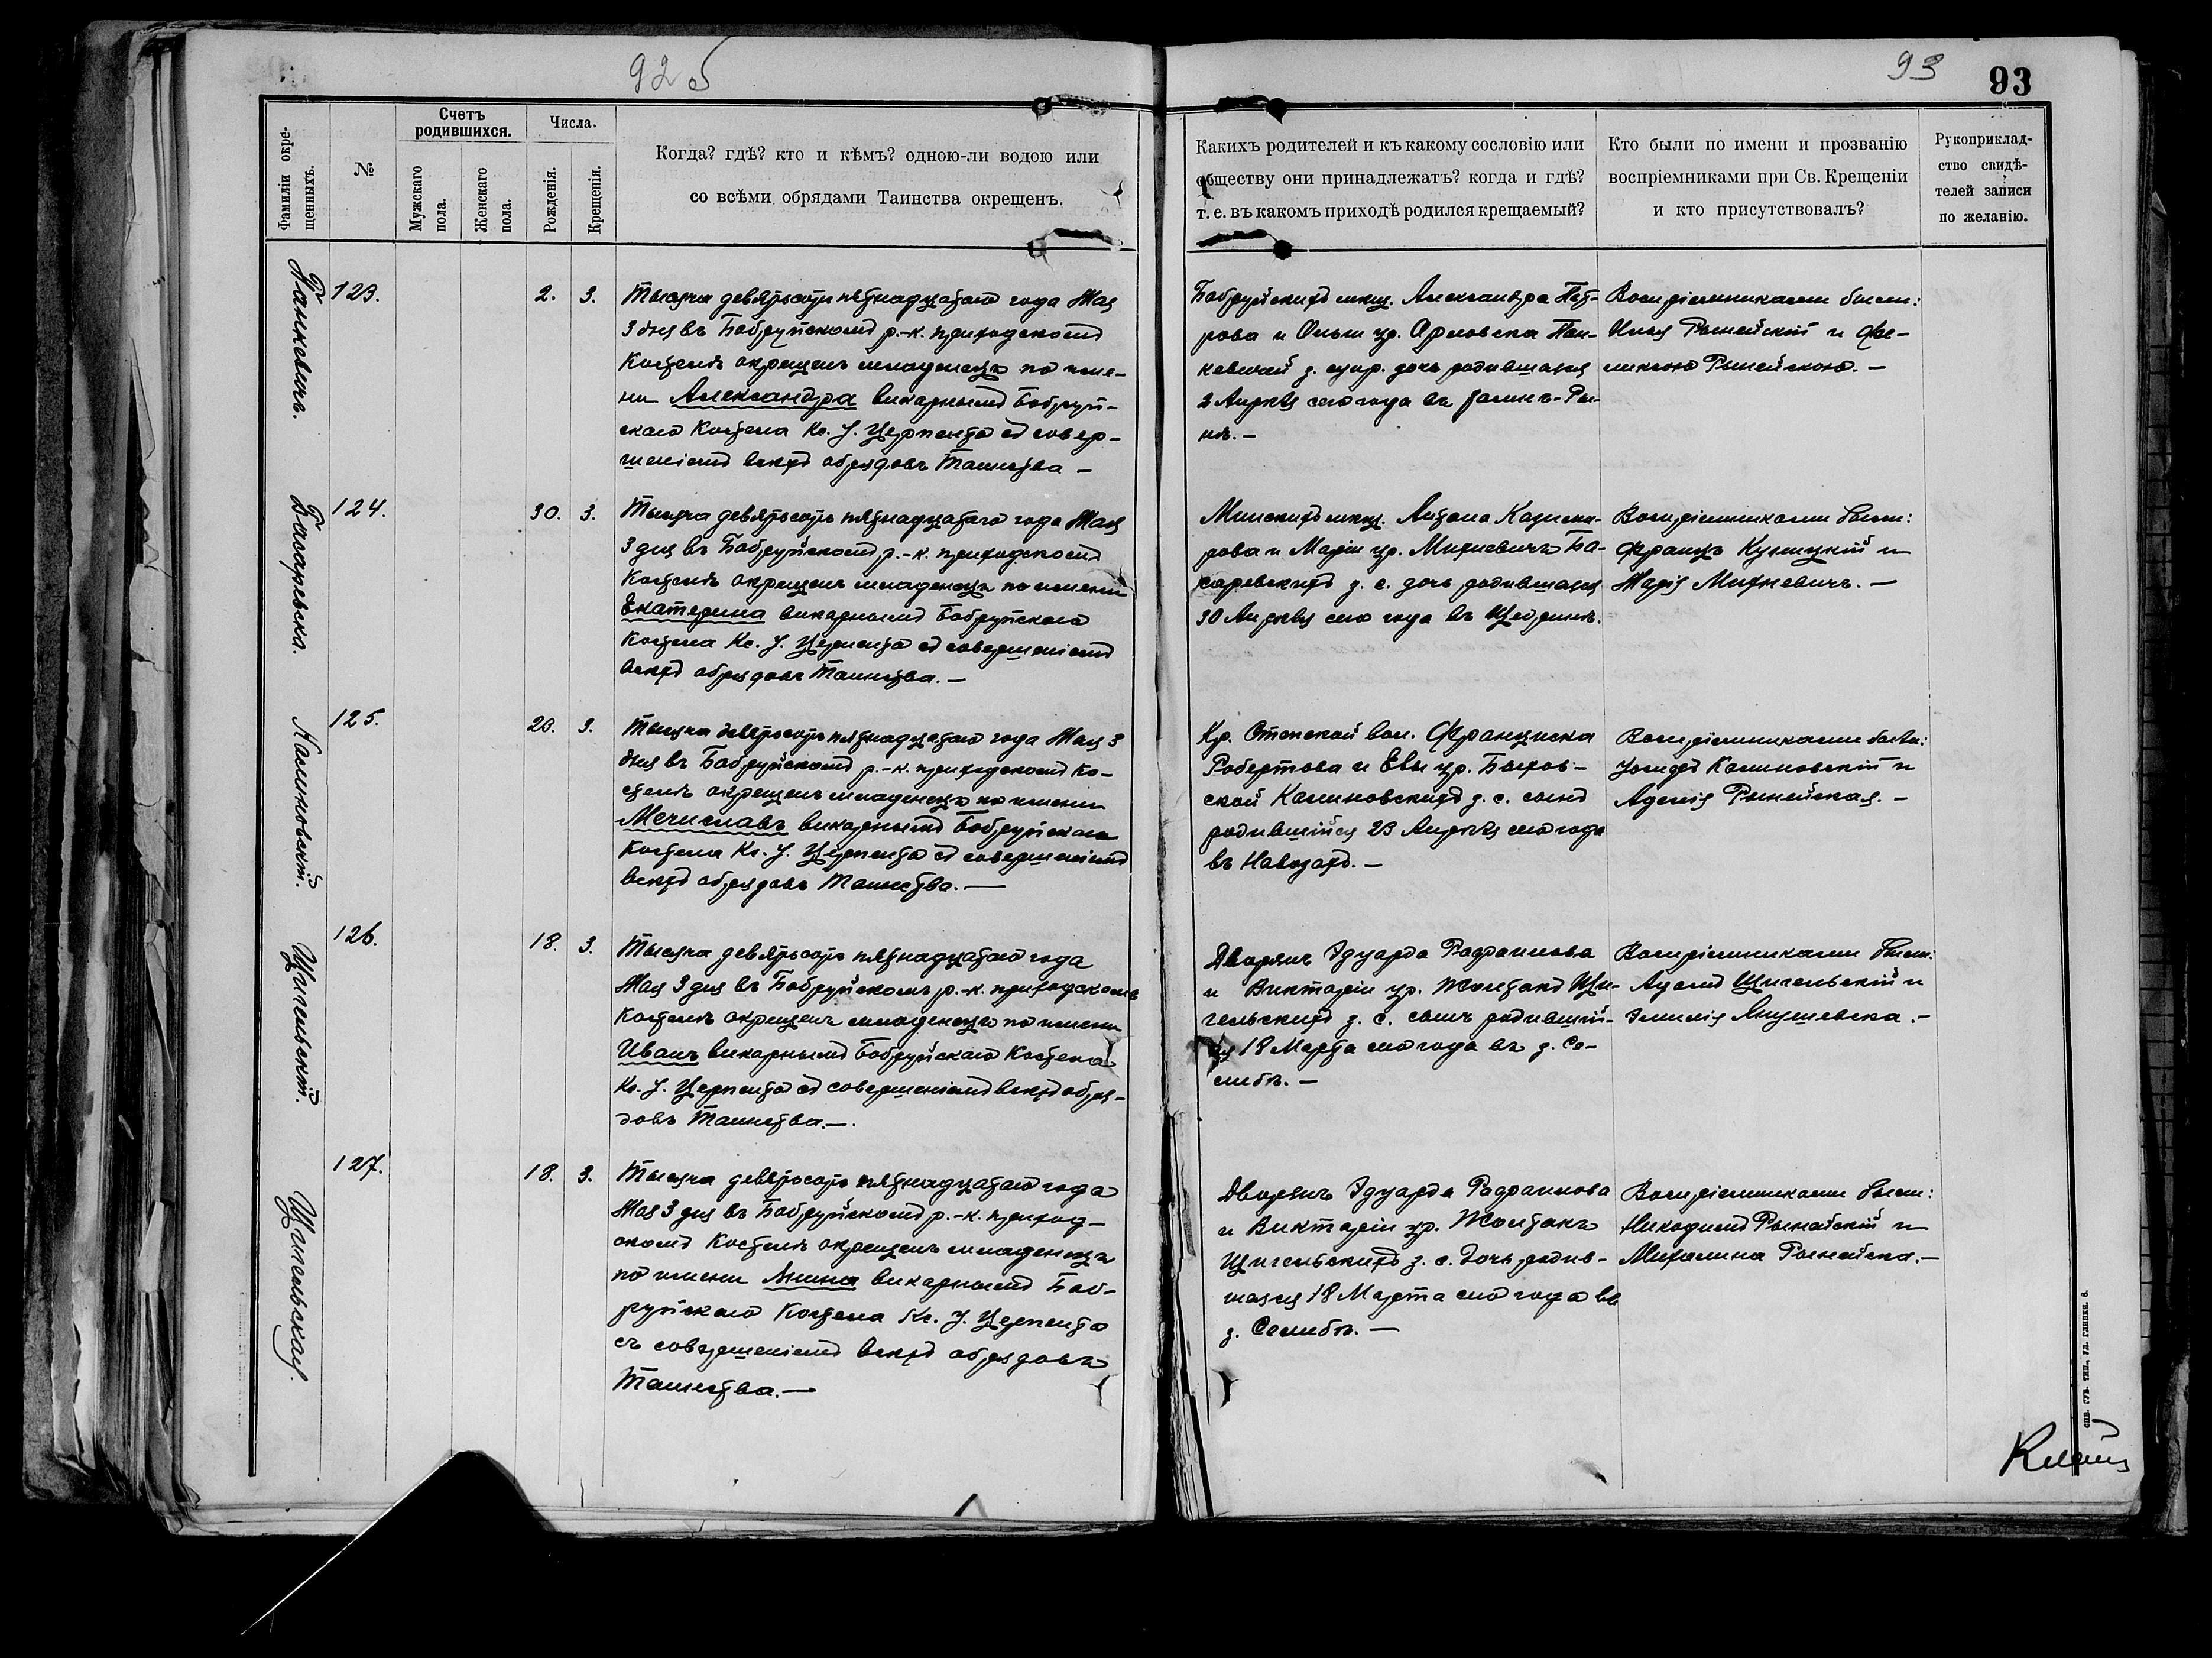 92 б
93
93
Фамиліи окре-
щенныхъ.
№
Счетъ
родившихся.
Мужскаго
пола.
Женскаго
пола.
Числа.
Рожденія.
Крещенія.
Когда? гдѣ? кто и кѣмъ? одною-ли водою или
со всѣми обрядами Таинства окрещенъ.
Какихъ родителей и къ какому сословію или
обществу они принадлежатъ? когда и гдѣ?
т. е. въ какомъ приходѣ родился крещаемый?
Кто были по имени и прозванію
воспріемниками при Св. Крещеніи
и кто присутствовалъ?
Рукоприклад-
ство свидѣ-
телей записи
по желанію.
Панкевичъ.
123.
2. 3.
Тысяча девятьсотъ пятнадцатаго года Мая
3 дня въ Бобруйскомъ р.-к. приходскомъ
Костелѣ окрещенъ младенецъ по име-
ни Александра викарнымъ Бобруй-
скаго Костела Кс. І. Церпенто съ совер-
шеніемъ всѣхъ обрядовъ Таинства —
Бобруйскихъ мѣщ. Александра Пет-
рова и Ольги ур. Орловска Пан-
кевичей з. супр. дочь родившаяся
2 Апрѣля сего года въ
Воспріемниками были:
Илья Рынейскій и Фе-
ликсою Рынейскою. —
Басаревска.
124.
30. 3.
Тысяча девятьсотъ пятнадцатаго года Мая
3 дня въ Бобруйскомъ р.-к. приходскомъ
Костелѣ окрещенъ младенецъ по имени
Екатерина викарнымъ Бобруйскаго
Костела Кс. І. Церпенто съ совершеніемъ
всѣхъ обрядовъ Таинства. —
Минскихъ мѣщ. Антона Казими-
рова и Маріи ур. Михневичъ Ба-
саревскихъ з. с. дочь родившаяся
30 Апрѣля сего года въ Щедринѣ.
Воспріемниками были:
Францъ Куницкій и
Марія Михневичъ. —
Калиновскій.
125.
23. 3.
Тысяча девятьсотъ пятнадцатаго года Мая 3
дня въ Бобруйскомъ р.-к. приходскомъ Ко-
стелѣ окрещенъ младенецъ по имени
Мечиславъ викарнымъ Бобруйскаго
Костела Кс. І. Церпенто съ совершеніемъ
всѣхъ обрядовъ Таинства. —
Кр. Отской вол. Франциска
Робертова и Евы ур. Быхов-
ской Калиновскихъ з. с. сынъ
родившійся 23 Апрѣля сего года
въ Навозахъ. —
Воспріемниками были:
Іосифъ Калиновскій и
Аделія Рынейская. —
Щигельскій.
126.
18. 3.
Тысяча девятьсотъ пятнадцатаго года
Мая 3 дня въ Бобруйскомъ р.-к. приходскомъ
Костелѣ окрещенъ младенецъ по имени
Иванъ викарнымъ Бобруйскаго Костела
Кс. І. Церпенто съ совершеніемъ всѣхъ обря-
довъ Таинства. —
Дворянъ Эдуарда Рафаилова
и Викторіи ур. Жолтакъ Щи-
гельскихъ з. с. сынъ родившій-
ся 18 Марта сего года въ з. Се-
либѣ. —
Воспріемниками были:
Адамъ Щигельскій и
Эмилія Янушевска. —
Щигельская.
127.
18. 3.
Тысяча девятьсотъ пятнадцатаго года
Мая 3 дня въ Бобруйскомъ р.-к. приход-
скомъ Костелѣ окрещенъ младенецъ
по имени Янина викарнымъ Боб-
руйскаго Костела Кс. І. Церпенто
съ совершеніемъ всѣхъ обрядовъ
Таинства. —
Дворянъ Эдуарда Рафаилова
и Викторіи ур. Жолтакъ
Щигельскихъ з. с. дочь родив-
шаяся 18 Марта сего года въ
з. Селибѣ. —
Воспріемниками были:
Никодимъ Рынейскій и
Михалина Рынейска. —
СПБ. ГУБ. ТИП., УЛ. ГЛИНКИ, 6.